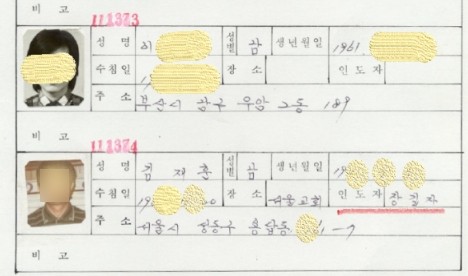 비 고
111373
성 명 성별 남 생년월일 1961.
수침일 19 장 소 인도자
주 소 부산시 남구 우암 2동 189
비 고
111374
성 명 김 재 성별 남 생년월일 19
수침일 19 장 소 서울교회 인도자
주 소 서울시 성동구 동 -7
비 고